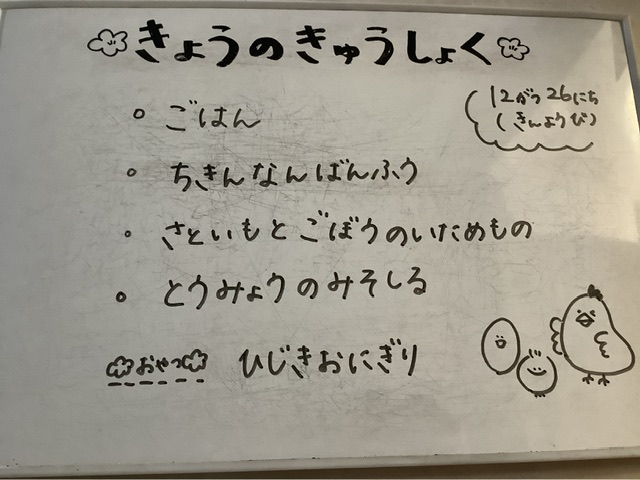 きょうのきゅうしょく
12がつ26にち
(きんようび)
・ごはん
・ちきんなんばんふう
・さといもとごぼうのいためもの
・とうみょうのみそしる
おやつ ひじきおにぎり